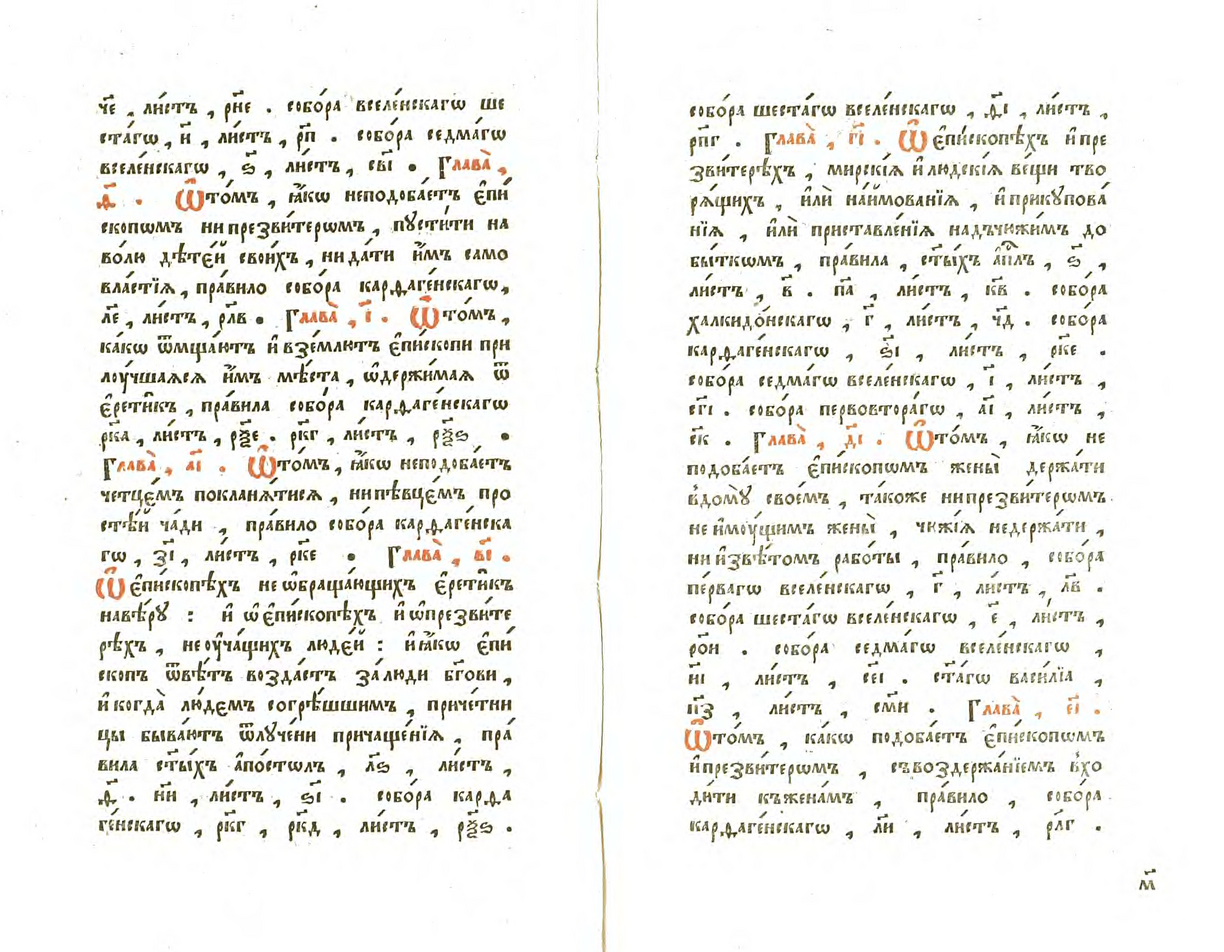 че҃ , ли́стъ , рн҃е . собо́ра вселе́нскагѡ ше
ста́гѡ , и҃ , ли́стъ , рп҃ . собо́ра седма́гѡ
вселе́нскагѡ , ѕ҃ , ли́стъ , св҃і . Глава̀ ,
ѳ҃ . Ѿто́мъ , ꙗ҆́кѡ неподоба́етъ є҆пи́
скопѡмъ нипрезви́терѡмъ , пꙋсти́ти на
во́лю дѣте́й свои́хъ , нида́ти и҆̀мъ само
вла́стїѧ , пра́вило собо́ра карѳаге́нскагѡ ,
ле҃ , ли́стъ , рл҃в . Глава̀ , і҃ . Ѿто́мъ ,
ка́кѡ ѿмща́ютъ и҆взе́млютъ є҆пи́скопи при
лоу́чшаѧсѧ и҆̀мъ мѣ́ста , ѡ҆держи́маѧ ѿ
є҆рети̑къ , пра́вила собо́ра карѳаге́нскагѡ
рк҃а , ли́стъ , рѯ҃е . рк҃г , ли́стъ , рѯ҃ѕ .
Глава̀ , а҃і . Ѿто́мъ , ꙗ҆́кѡ неподоба́етъ
четце́мъ поклана́тисѧ , нипѣвце́мъ про
сте́й ча́ди , пра́вило собо́ра карѳаге́нска
гѡ , з҃і , ли́стъ , рк҃е . Глава̀ , в҃і .
Ѡ҆є҆пи́скопѣхъ не ѡ҆браща́ющихъ є҆рети̑къ
навѣ́рꙋ : и҆ ѡ҆ є҆пи́скопѣхъ и҆ѡ҆презви́те
рѣхъ , неоу҆ча́щихъ люде́й : и҆ꙗ҆́кѡ є҆пи́
скопъ ѿвѣ́тъ возда́стъ за́люди бг҃ови ,
и҆когда̀ лю́демъ согрѣ́шшимъ , приче́тни
цы быва́ютъ ѿлꙋ́чени причаще́нїѧ , пра́
вила ст҃ы́хъ а҆по́столъ , л҃ѕ , ли́стъ ,
ѳ҃ . н҃и , ли́стъ , ѕ҃і . собо́ра карѳа
ге́нскагѡ , рк҃г , рк҃д , ли́стъ , рѯ҃ѕ .
собо́ра шеста́гѡ вселе́нскагѡ , ѳ҃і , ли́стъ ,
рп҃г . Глава̀ , г҃і . Ѡ҆є҆пи́скопѣхъ и҆пре
зви́терѣхъ , мирскі́ѧ и҆людскі́ѧ ве́щи тво
рѧ́щихъ , и҆лѝ наи҆мова́нїѧ , и҆прикꙋпова́
нїѧ , и҆лѝ приставле́нїѧ надъчꙋжи́мъ до
бы́ткѡмъ , пра́вила , ст҃ы́хъ а҆пл҃ъ , ѕ҃ ,
ли́стъ , в҃ . п҃а , ли́стъ , к҃в . собо́ра
халкидо́нскагѡ , г҃ , ли́стъ , ч҃д . собо́ра
карѳаге́нскагѡ , ѕ҃і , ли́стъ , рк҃е .
собо́ра седма́гѡ вселе́нскагѡ , і҃ , ли́стъ ,
сг҃і . собо́ра первовтора́гѡ , а҃і , ли́стъ ,
с҃к . Глава̀ , д҃і . Ѿто́мъ , ꙗ҆́кѡ не
подоба́етъ є҆пи́скопѡмъ жены̀ держа́ти
вдомꙋ̀ свое́мъ , та́коже нипрезви́терѡмъ
не и҆моу́щимъ жены̀ , чꙋжі́ѧ недержа́ти ,
ни и҆звѣ́томъ рабо́ты , пра́вило , собо́ра
пе́рвагѡ вселе́нскагѡ , г҃ , ли́стъ , л҃в .
собо́ра шеста́гѡ вселе́нскагѡ , е҃ , ли́стъ ,
ро҃и . собо́ра седма́гѡ вселе́нскагѡ ,
н҃і , ли́стъ , се҃і . ст҃а́гѡ васи́лїа ,
п҃з , ли́стъ , см҃и . Глава̀ , е҃і .
Ѿто́мъ , ка́кѡ подоба́етъ є҆пи́скопѡмъ
и҆презви́терѡмъ , съвоздержа́нїемъ вхо
ди́ти къжена́мъ , пра́вило , собо́ра
карѳаге́нскагѡ , л҃и , ли́стъ , рл҃г .
м҃